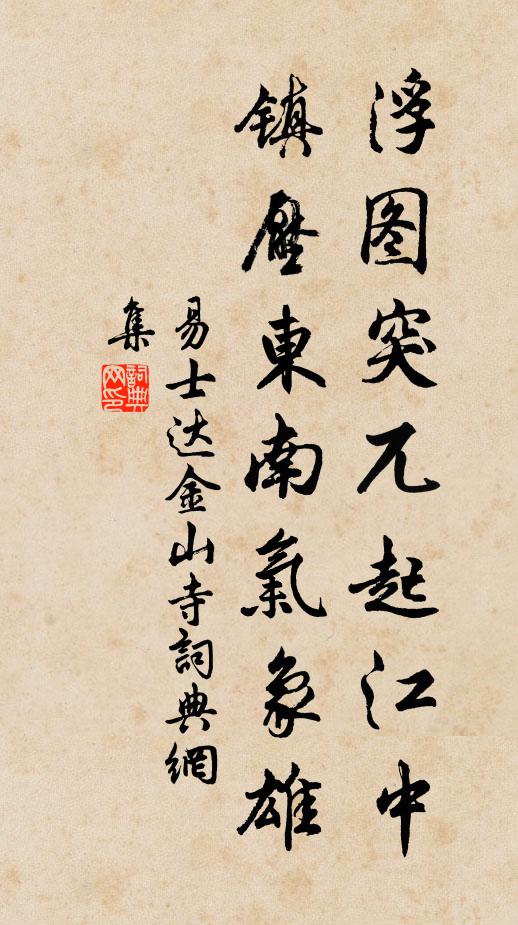 浮图突兀起江中
镇壓東南氣象雄
易士达金山寺詞典網
集
詞典网印